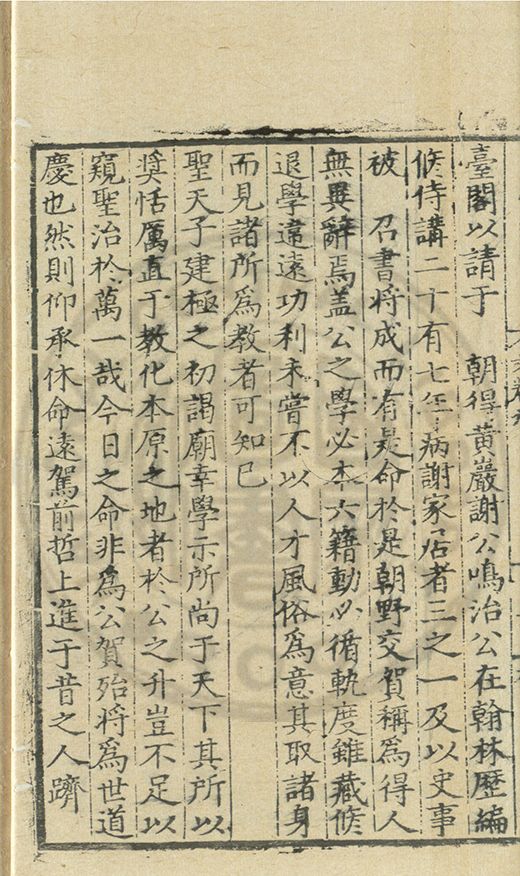 臺閣以請于　朝得黃巖謝公鳴治公在翰林歷編
脩侍講二十有七年病謝家居者三之一及以史事
被　召書將成而有是命於是朝野交賀稱為得人
無異辭焉盖公之學必本六籍動必循軌度雖藏脩
退學違遠功利未嘗不以人才風俗為意其取諸身
而見諸所為教者可知已
聖天子建極之初謁廟幸學示所尚于天下其所以
奬恬厲直于教化本原之地者於公之升豈不足以
窺聖治於萬一哉今日之命非為公賀殆將為世道
慶也然則仰承休命遠駕前哲上進于昔之人躋